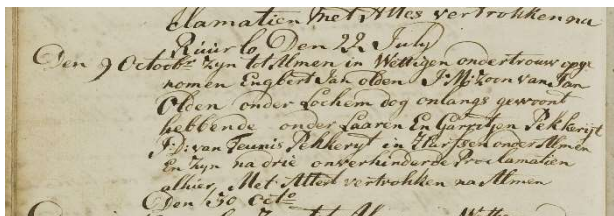 clamatien met Attes vertrokken na
Ruurlo Den 22 July
Den 9 Octobr zyn tot Almen in Wettigen ondertrouw opge
nomen Engbert Jan olden J:M: zoon van Jan
Olden onder Lochem dog onlangs gewoont
hebbende onder Laaren En Garritjen Pekkeryt
J:D: van Teunis Pekkeryt in Harfsen onder Almen
En zyn na drie onverhinderde Proclamatien
alhier Met Attest vertrokken na Almen
Den 30 Octbr